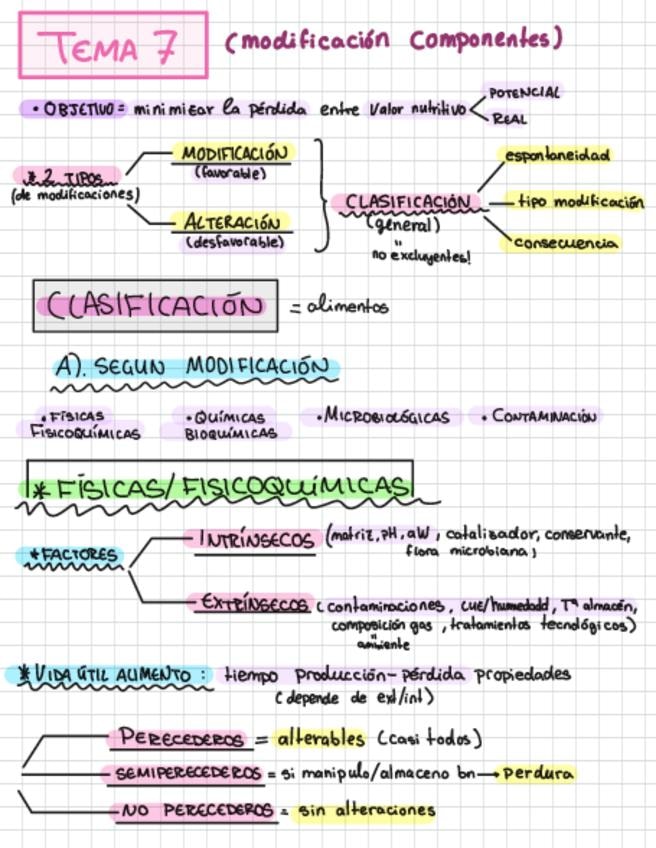 TEMA 7 (modificación Componentes)
• OBJETIVO = minimizar la pérdida entre Valor nutritivo
POTENCIAL
REAL
* 2 TIPOS
(de modificaciones)
MODIFICACIÓN
(favorable)
ALTERACIÓN
(desfavorable)
CLASIFICACIÓN
(general)
"
no excluyentes!
espontaneidad
tipo modificación
consecuencia
CLASIFICACIÓN = alimentos
A). SEGUN MODIFICACIÓN
• FÍSICAS
FISICOQUÍMICAS
• QUÍMICAS
BIOQUÍMICAS
• MICROBIOLÓGICAS
• CONTAMINACIÓN
* FÍSICAS/FISICOQUÍMICAS
* FACTORES
INTRÍNSECOS (matriz, pH, aW, catalizador, conservante,
flora microbiana)
EXTRÍNSECOS (contaminaciones, luz/humedad, Tª almacén,
composición gas, tratamientos tecnológicos)
"
ambiente
* VIDA ÚTIL ALIMENTO : tiempo producción - pérdida propiedades
(depende de ext/int)
PERECEDEROS = alterables (casi todos)
SEMIPERECEDEROS = si manipulo/almaceno bn → perdura
NO PERECEDEROS = sin alteraciones